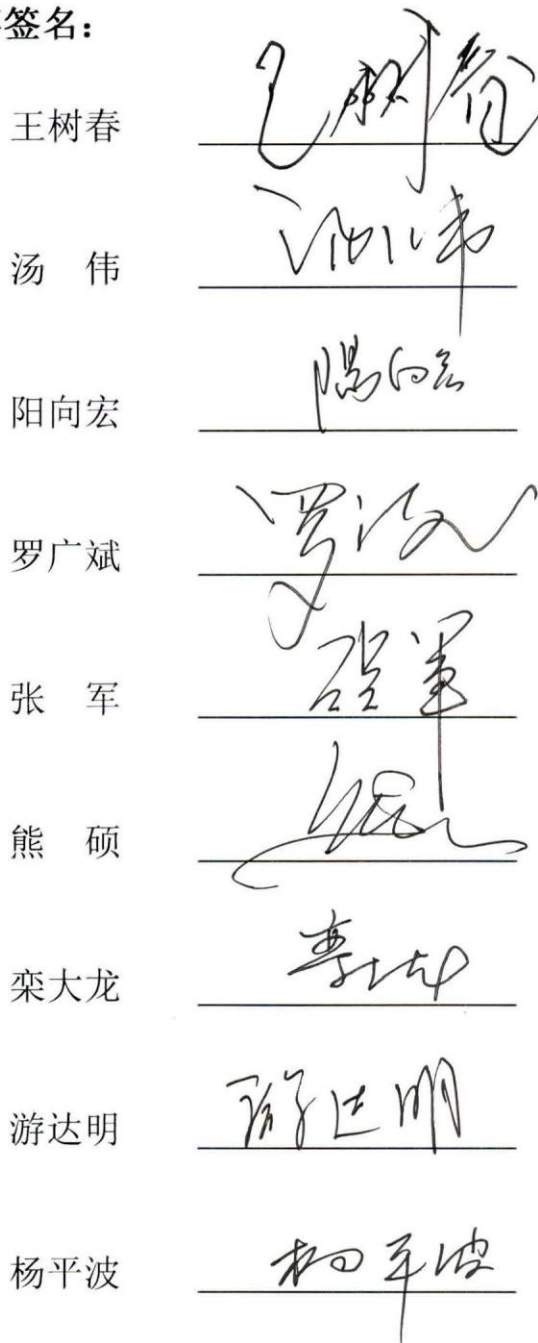 签名：
王树春 王树春
汤 伟 汤伟
阳向宏 阳向宏
罗广斌
张 军 张军
熊 硕
栾大龙 栾大龙
游达明 游达明
杨平波 杨平波